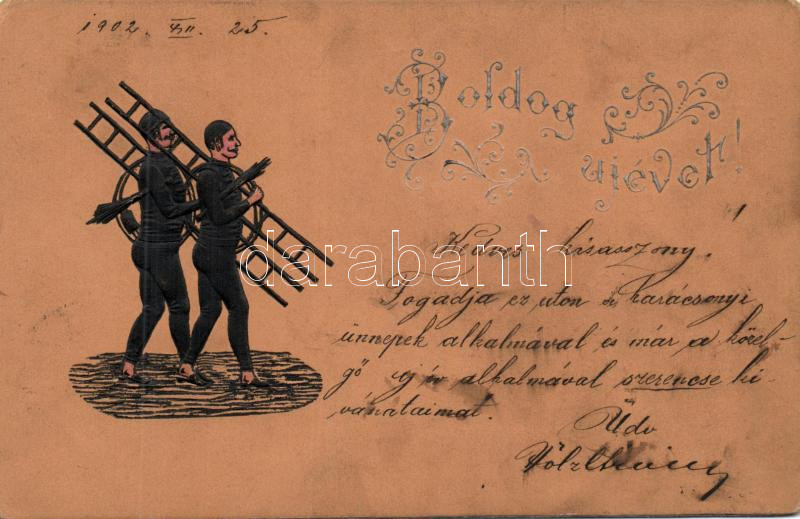 1902. XII. 25.
Boldog
ujévet!
Kedves kisasszony!
Fogadja ez uton a karácsonyi
ünnepek alkalmával és már a közel-
gő uj év alkalmával szerencse ki-
vánataimat.
Üdv
darabanth